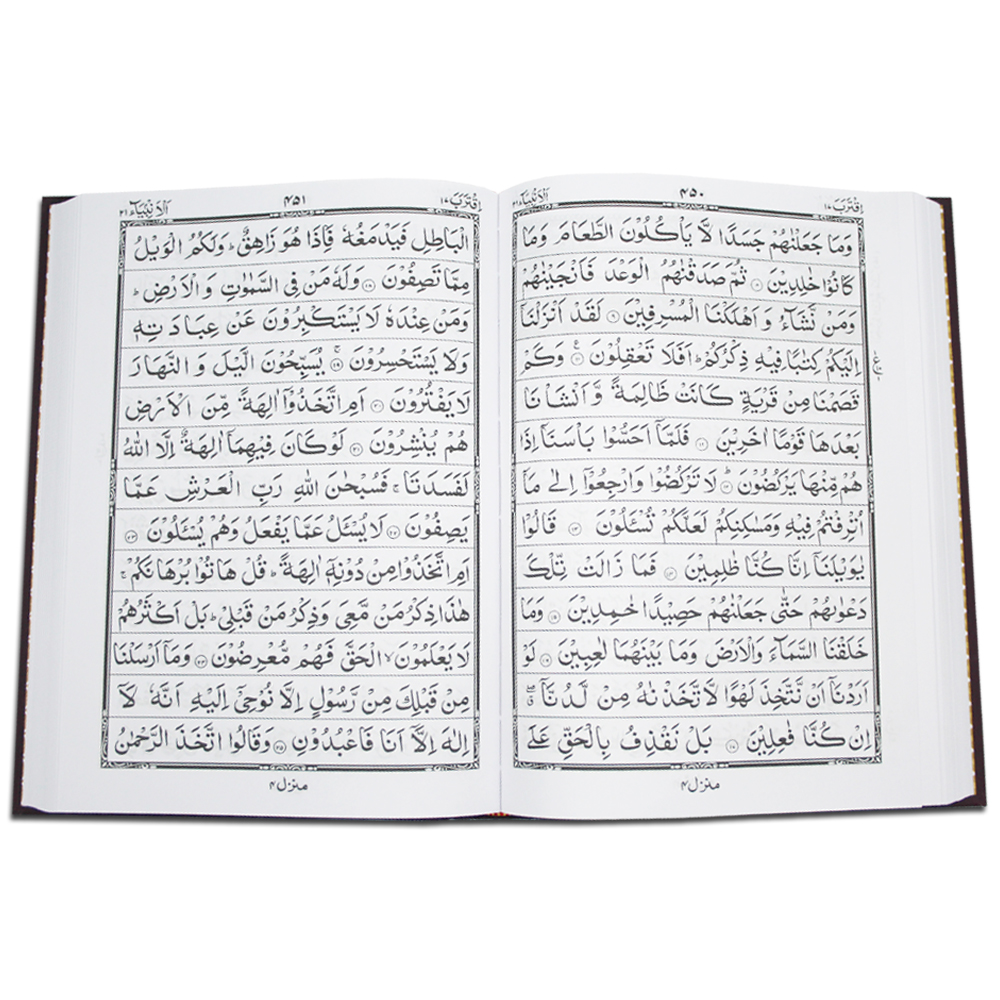 اِقْتَرَبَ ١٧
۴۵۰
اَلْاَنْۢبِيَآء ٢١
وَمَا جَعَلْنٰهُمْ جَسَدًا لَّا يَاْكُلُوْنَ الطَّعَامَ وَمَا
كَانُوْا خٰلِدِيْنَ ۸ ثُمَّ صَدَقْنٰهُمُ الْوَعْدَ فَاَنْجَيْنٰهُمْ
وَمَنْ نَّشَآءُ وَ اَهْلَكْنَا الْمُسْرِفِيْنَ ۹ لَقَدْ اَنْزَلْنَاۤ
اِلَيْكُمْ كِتٰبًا فِيْهِ ذِكْرُكُمْ ؕ اَفَلَا تَعْقِلُوْنَ ۱۰ وَكَمْ
قَصَمْنَا مِنْ قَرْيَةٍ كَانَتْ ظَالِمَةً وَّ اَنْشَاْنَا
بَعْدَهَا قَوْمًا اٰخَرِيْنَ ۱۱ فَلَمَّاۤ اَحَسُّوْا بَاْسَنَاۤ اِذَا
هُمْ مِّنْهَا يَرْكُضُوْنَ ؕ ۱۲ لَا تَرْكُضُوْا وَارْجِعُوْۤا اِلٰى مَاۤ
اُتْرِفْتُمْ فِيْهِ وَمَسٰكِنِكُمْ لَعَلَّكُمْ تُسْئَلُوْنَ ۱۳ قَالُوْا
يٰوَيْلَنَاۤ اِنَّا كُنَّا ظٰلِمِيْنَ ۱۴ فَمَا زَالَتْ تِّلْكَ
دَعْوٰىهُمْ حَتّٰى جَعَلْنٰهُمْ حَصِيْدًا خٰمِدِيْنَ ۱۵ وَمَا
خَلَقْنَا السَّمَآءَ وَالْاَرْضَ وَمَا بَيْنَهُمَا لٰعِبِيْنَ ۱۶ لَوْ
اَرَدْنَاۤ اَنْ نَّتَّخِذَ لَهْوًا لَّاتَّخَذْنٰهُ مِنْ لَّدُنَّاۤ ۖ
اِنْ كُنَّا فٰعِلِيْنَ ۱۷ بَلْ نَقْذِفُ بِالْحَقِّ عَلَى
منزل ۴
اِقْتَرَبَ ١٧
۴۵۱
اَلْاَنْۢبِيَآء ٢١
الْبَاطِلِ فَيَدْمَغُهٗ فَاِذَا هُوَ زَاهِقٌ ؕ وَلَكُمُ الْوَيْلُ
مِمَّا تَصِفُوْنَ ۱۸ وَلَهٗ مَنْ فِى السَّمٰوٰتِ وَ الْاَرْضِ ؕ
وَمَنْ عِنْدَهٗ لَا يَسْتَكْبِرُوْنَ عَنْ عِبَادَتِهٖ
وَلَا يَسْتَحْسِرُوْنَ ۚ ۱۹ يُسَبِّحُوْنَ الَّيْلَ وَ النَّهَارَ
لَا يَفْتُرُوْنَ ۲۰ اَمِ اتَّخَذُوْۤا اٰلِهَةً مِّنَ الْاَرْضِ
هُمْ يُنْشِرُوْنَ ۲۱ لَوْ كَانَ فِيْهِمَاۤ اٰلِهَةٌ اِلَّا اللّٰهُ
لَفَسَدَتَا ۚ فَسُبْحٰنَ اللّٰهِ رَبِّ الْعَرْشِ عَمَّا
يَصِفُوْنَ ۲۲ لَا يُسْئَلُ عَمَّا يَفْعَلُ وَهُمْ يُسْئَلُوْنَ ۲۳
اَمِ اتَّخَذُوْا مِنْ دُوْنِهٖۤ اٰلِهَةً ؕ قُلْ هَاتُوْا بُرْهَانَكُمْ ۚ
هٰذَا ذِكْرُ مَنْ مَّعِىَ وَذِكْرُ مَنْ قَبْلِىْ ؕ بَلْ اَكْثَرُهُمْ
لَا يَعْلَمُوْنَ ۙ الْحَقَّ فَهُمْ مُّعْرِضُوْنَ ۲۴ وَمَاۤ اَرْسَلْنَا
مِنْ قَبْلِكَ مِنْ رَّسُوْلٍ اِلَّا نُوْحِىْۤ اِلَيْهِ اَنَّهٗ لَاۤ
اِلٰهَ اِلَّاۤ اَنَا فَاعْبُدُوْنِ ۲۵ وَقَالُوا اتَّخَذَ الرَّحْمٰنُ
منزل ۴